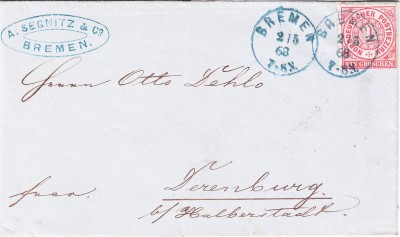 A. SEGNITZ & Co.
BREMEN.
BREMEN
2/5
68
7-8N.
BREMEN
2/5
68
7-8N.
NORDDEUTSCHER POSTBEZIRK
EIN GROSCHEN
Herrn Otto Dehlo
franco.
Derenburg
b/ Halberstadt.